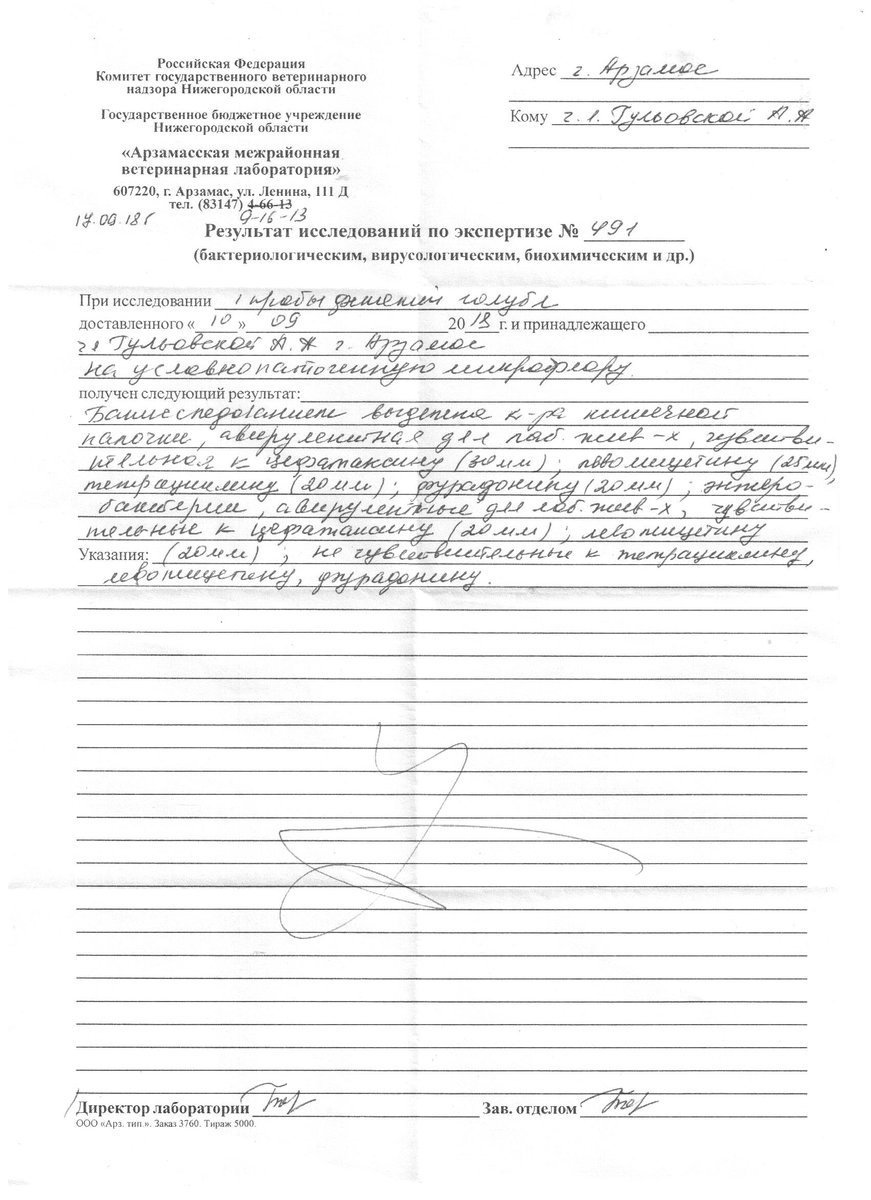 Российская Федерация
Комитет государственного ветеринарного
надзора Нижегородской области
Государственное бюджетное учреждение
Нижегородской области
«Арзамасская межрайонная
ветеринарная лаборатория»
607220, г. Арзамас, ул. Ленина, 111 Д
тел. (83147) 4-66-13
9-16-13
17.09.18г
Адрес г. Арзамас
Кому ч.л. Гульовской А.А
Результат исследований по экспертизе № 491
(бактериологическим, вирусологическим, биохимическим и др.)
При исследовании 1 пробы фекалий голубя
доставленного « 10 » 09 2018 г. и принадлежащего
чл Гульовской А.А г. Арзамас
на условнопатогенную микрофлору.
получен следующий результат:
Бакисследованием выделена к-ра кишечной
палочки, авирулентная для лаб. жив-х, чувстви-
тельная к цефатаксину (30мм); левомицетину (25мм),
тетрациклину (20мм); фурадонину (20мм); энтеро-
бактерии, авирулентные для лаб. жив-х, чувстви-
тельные к цефатаксину (20мм); левомицетину
Указания: (20мм); не чувствительные к тетрациклину,
левомицетину, фурадонину.
Директор лаборатории
Зав. отделом
ООО «Арз. тип.». Заказ 3760. Тираж 5000.